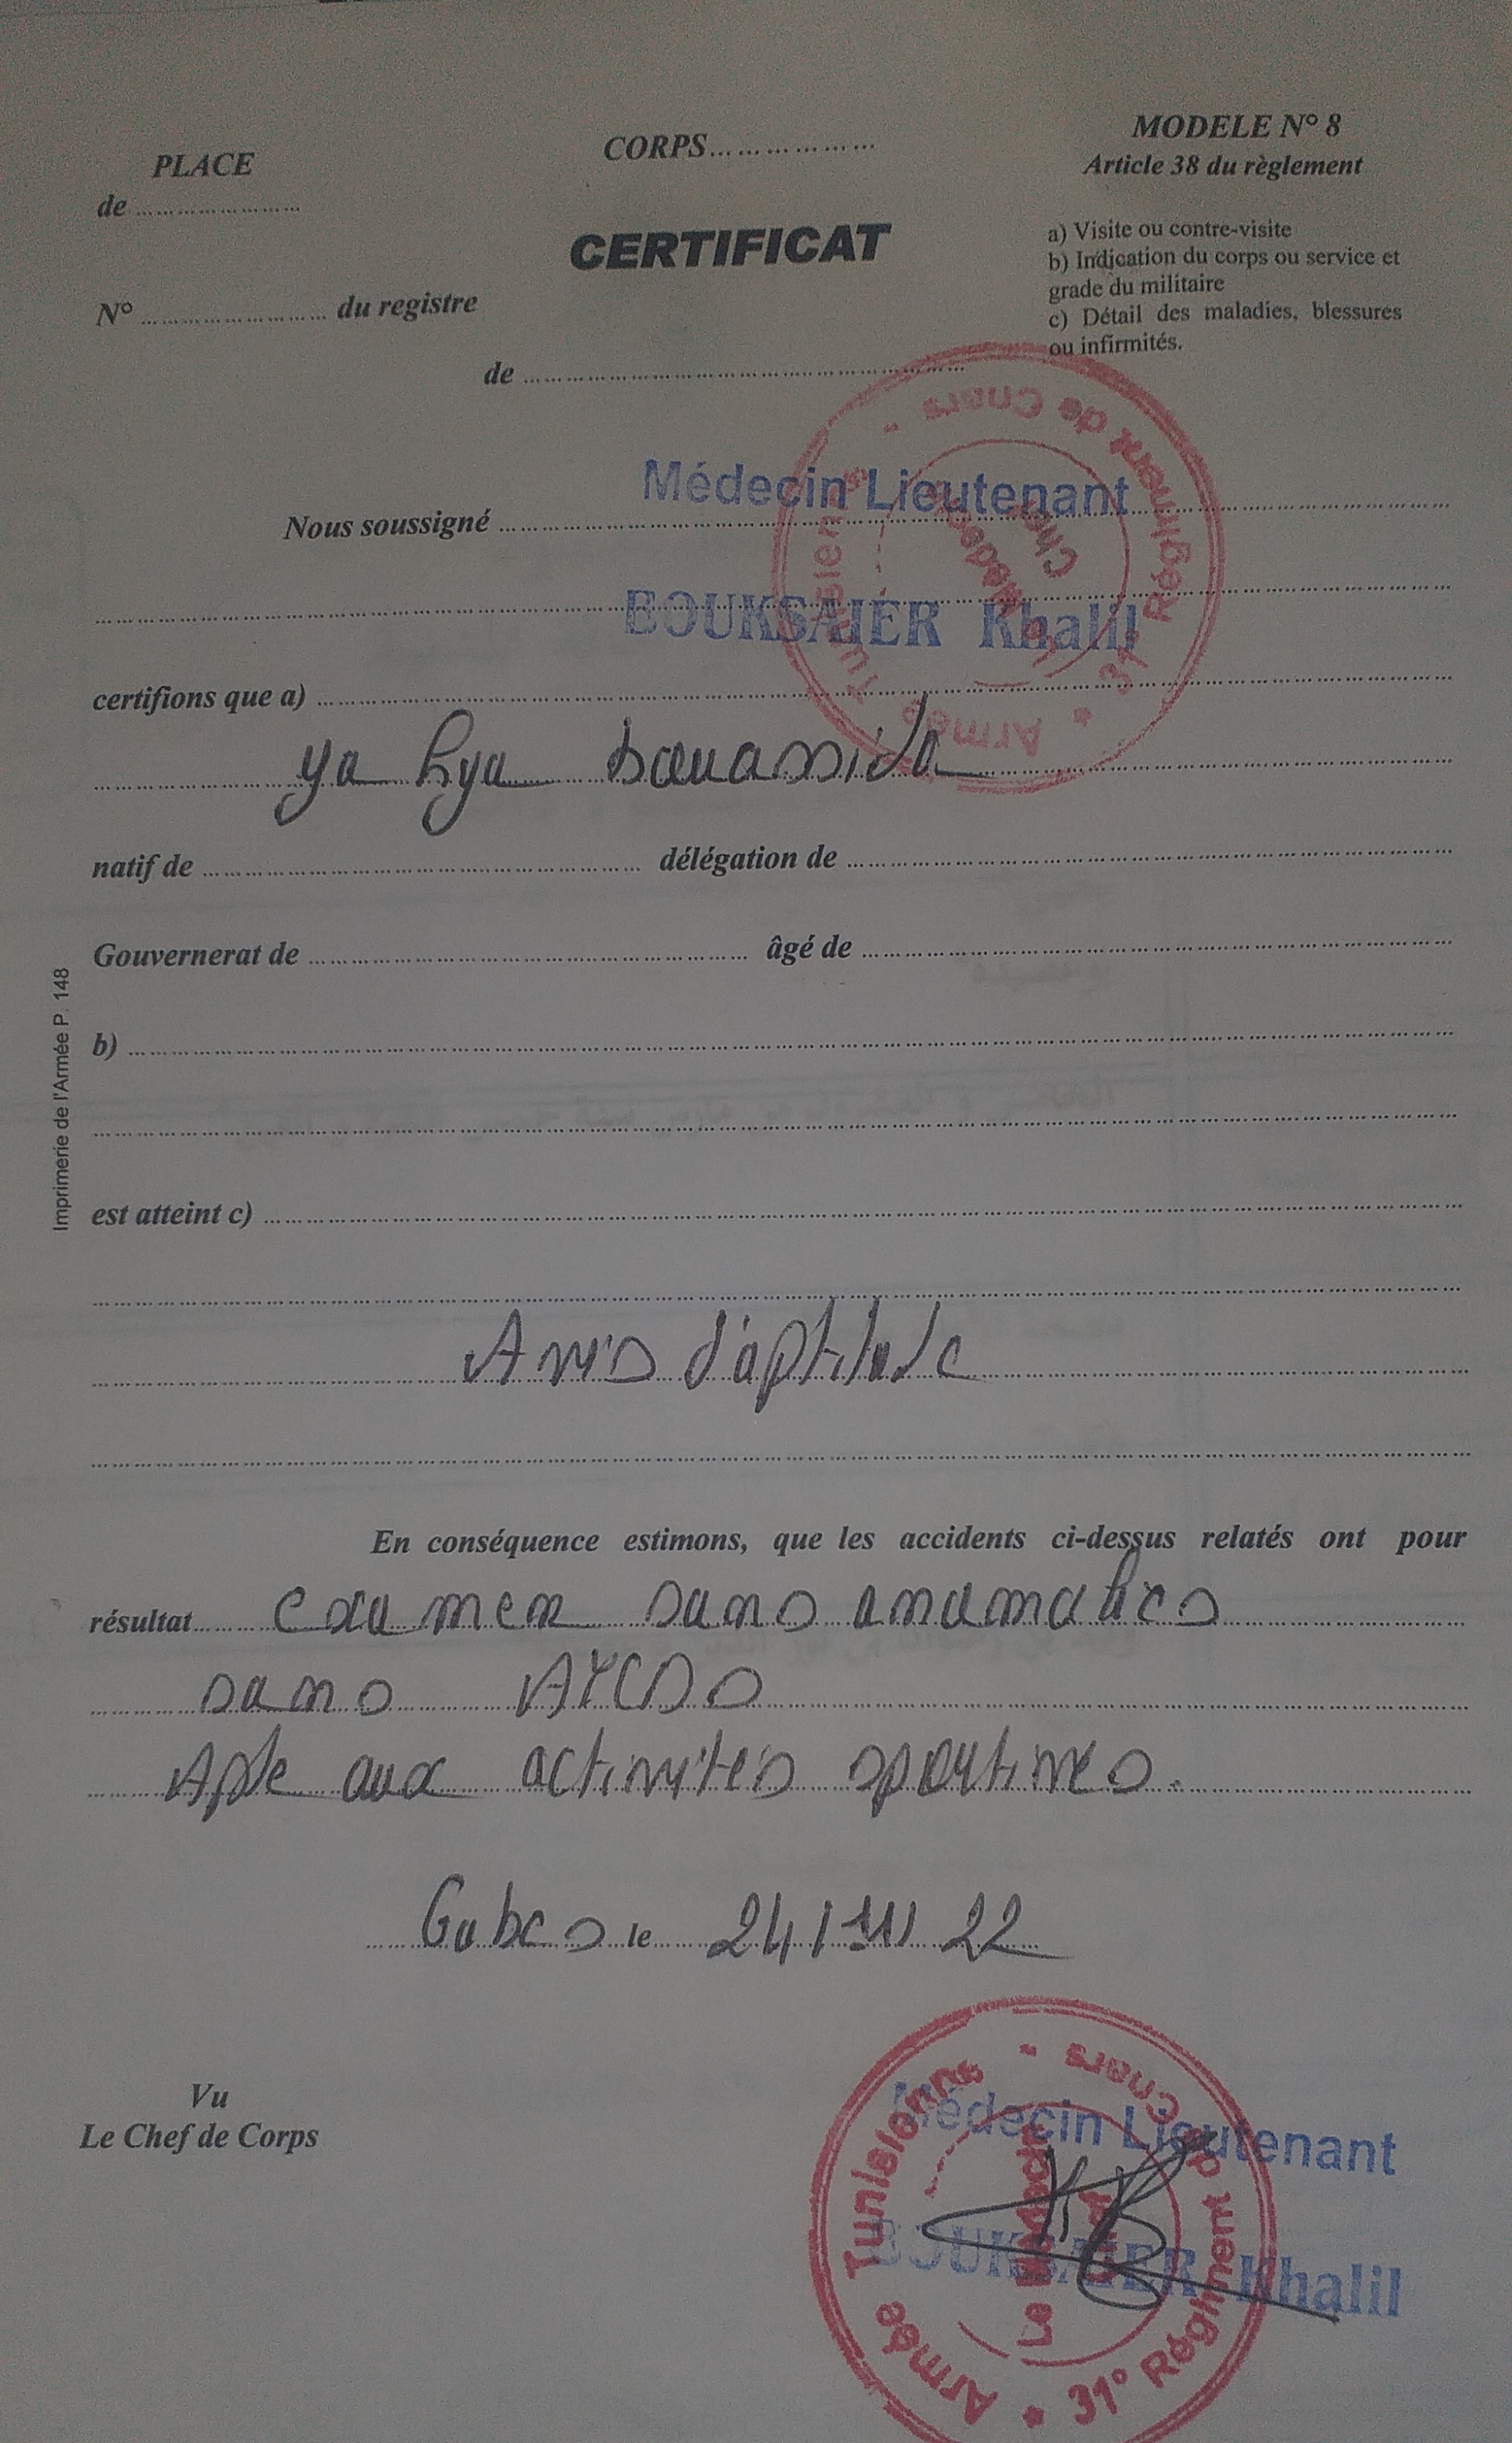 MODELE N° 8
PLACE
CORPS..................
Article 38 du règlement
de ........................
a) Visite ou contre-visite
CERTIFICAT
b) Indication du corps ou service et
grade du militaire
N° ........................ du registre
c) Détail des maladies, blessures
ou infirmités.
de ........................
Médecin Lieutenant
Nous soussigné ........................
BOUKSAIER Khalil
Armée Tunisienne - 31° Régiment de Chars -
certifions que a) ........................
ya hya bouassida
natif de ........................ délégation de ........................
Gouvernerat de ........................ âgé de ........................
b) ........................
est atteint c) ........................
Avis d'aptitude
En conséquence estimons, que les accidents ci-dessus relatés ont pour
résultat examen sans anomalies
sans ATCDS
Apte aux activités sportives.
Gabes le 24/11/22
Vu
Le Chef de Corps
Médecin Lieutenant
BOUKSAIER Khalil
Armée Tunisienne - 31° Régiment de Chars -
Le Médecin
Imprimerie de l'Armée P. 148